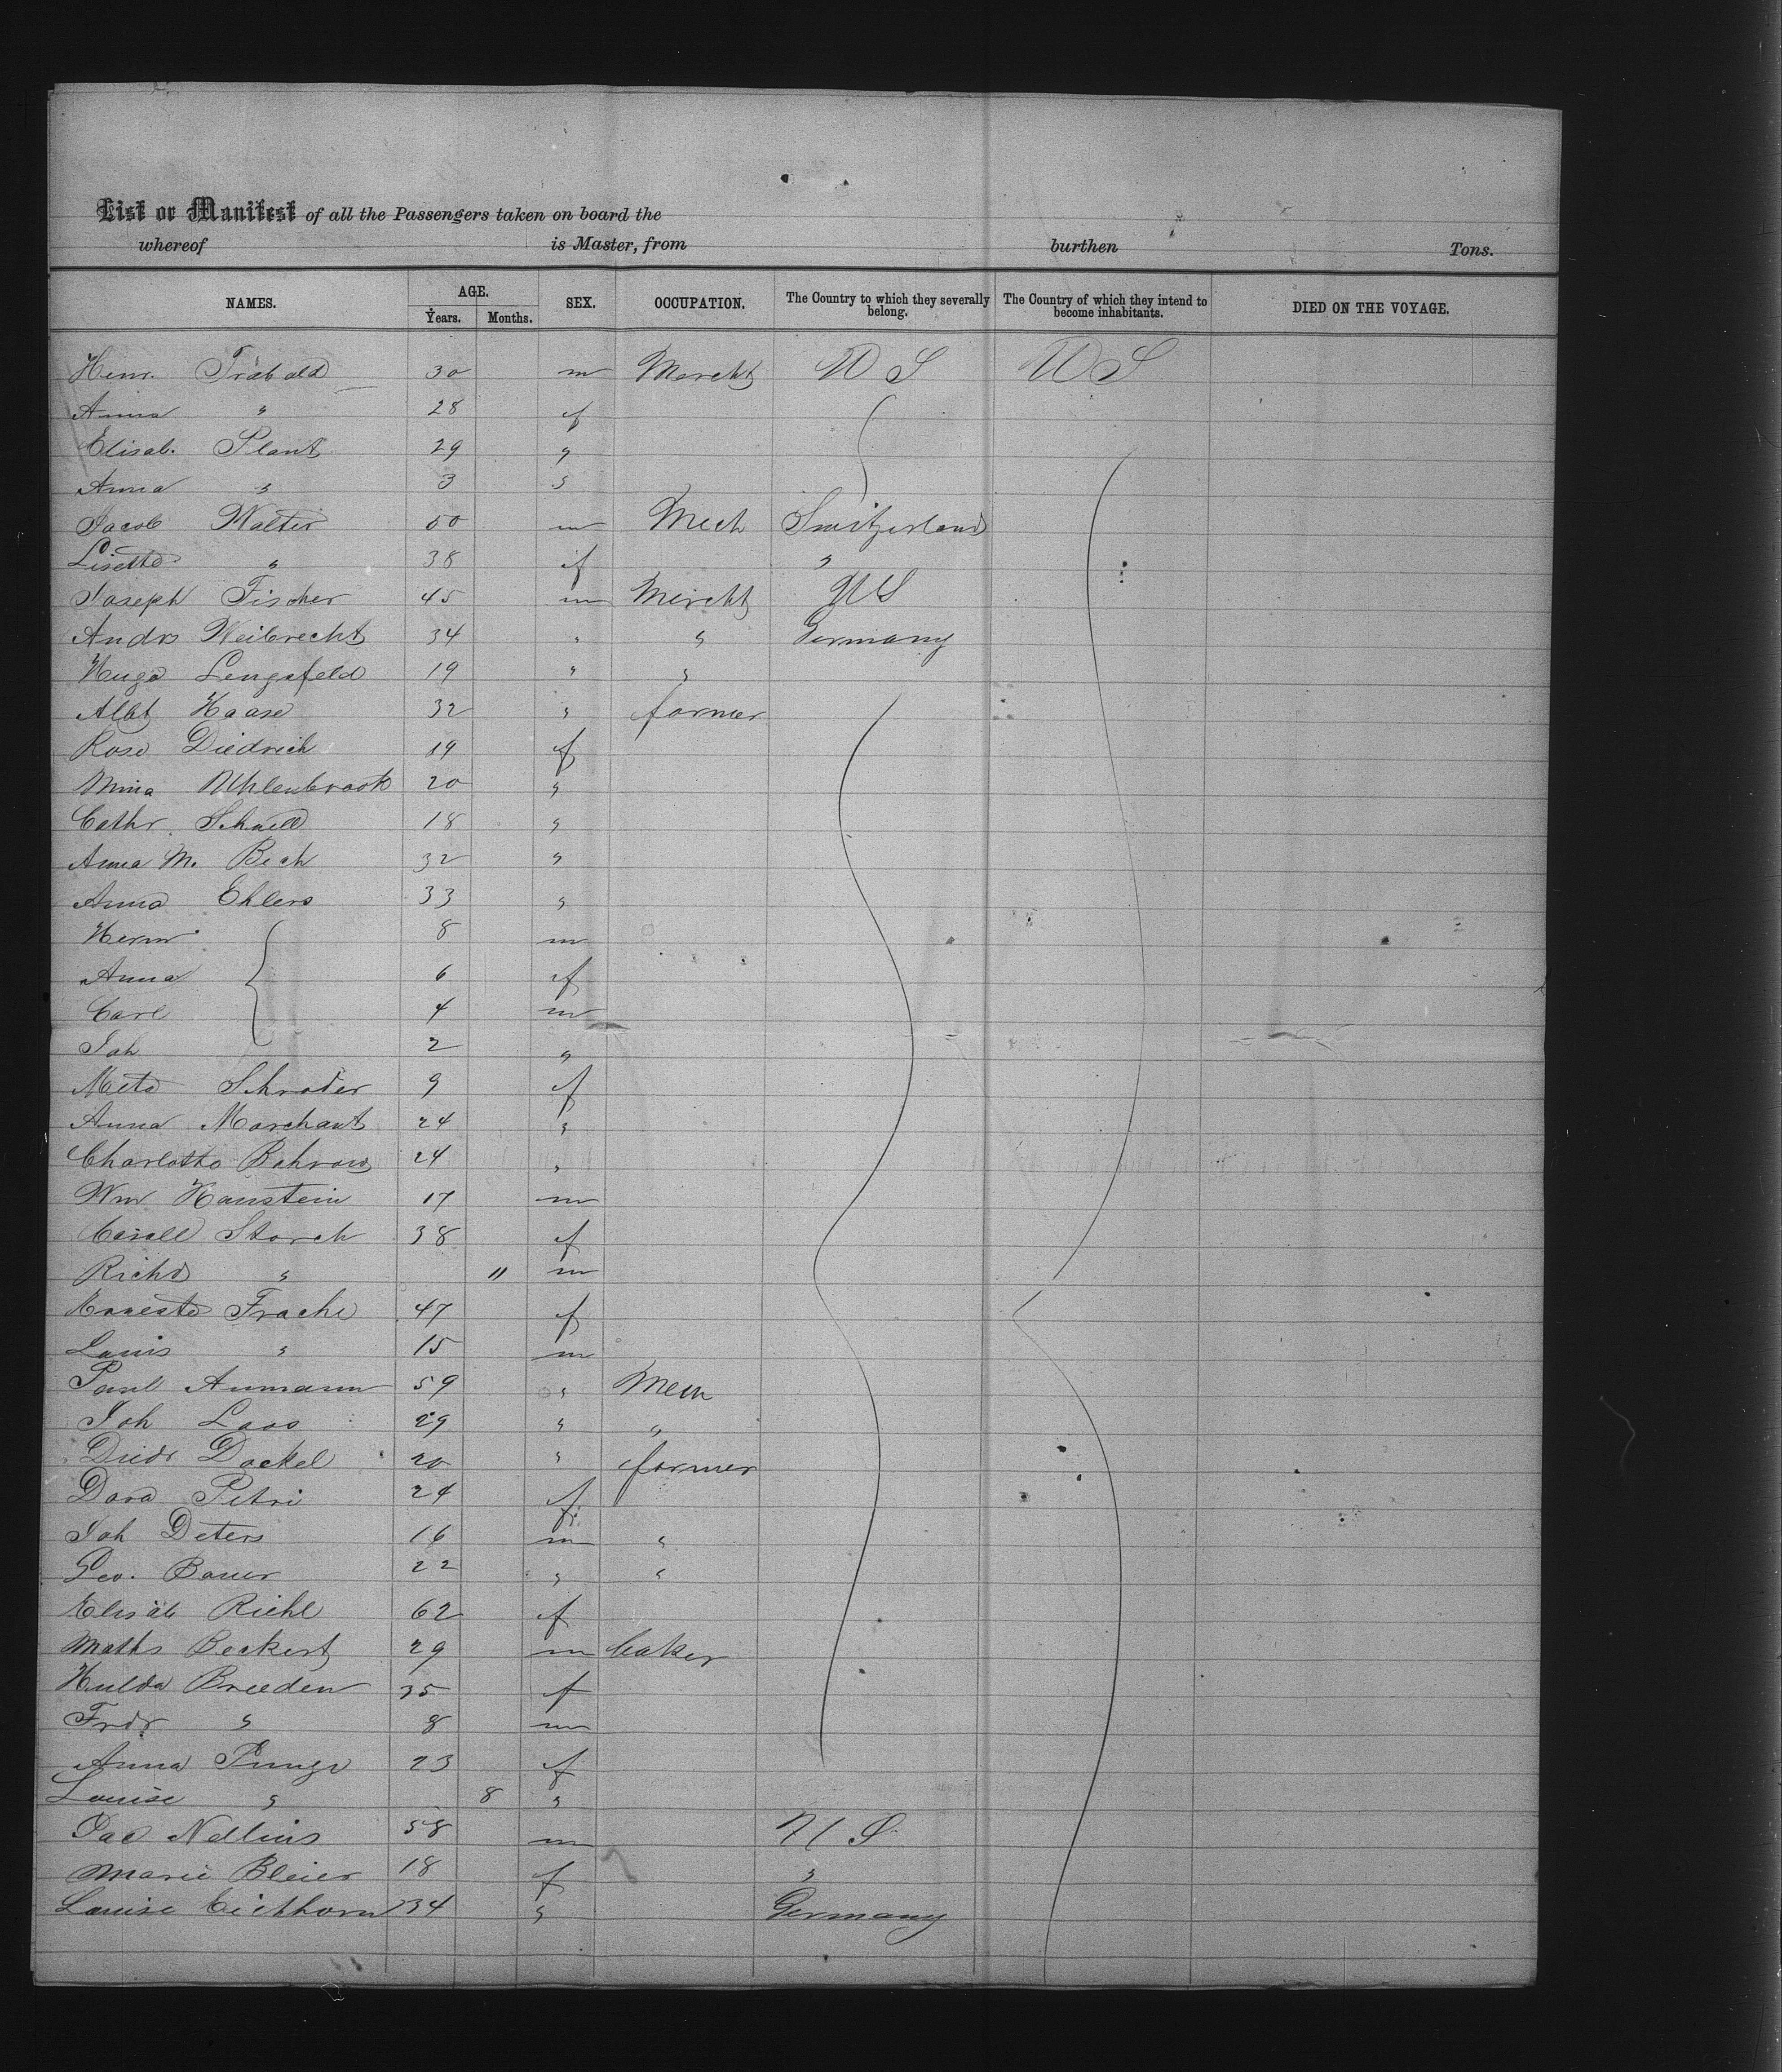 List or Manifest of all the Passengers taken on board the
whereof is Master, from burthen Tons.
NAMES. AGE. Years. Months. SEX. OCCUPATION. The Country to which they severally belong. The Country of which they intend to become inhabitants. DIED ON THE VOYAGE.
Henr. Trabold 30 m Mercht U S U S
Anna " 28 f
Elisab. Plant 29 "
Anna " 3 "
Jacob Walter 50 m Mech Switzerland
Lisette " 38 f "
Joseph Fischer 45 m Mercht U S
Andrs Weibrecht 34 " " Germany
Hugo Lengsfeld 19 " "
Albt Haase 32 " farmer
Rose Diedrich 19 f
Mina Uhlenbrook 20 "
Cathr. Schnell 18 "
Anna M. Bech 32 "
Anna Ehlers 33 "
Herm 8 m
Anna 6 f
Carl 4 m
Joh 2 "
Meta Schroder 9 f
Anna Marchant 24 "
Charlotte Bahrow 24 "
Wm Hanstein 17 m
Storch 38 f
Richd " 11 m
Erneste Frache 47 f
Louis " 15 m
Paul Aumann 59 " Mech
Joh Laos 29 " "
Diedr Dackel 20 " farmer
Dora Petri 24 f
Joh Deters 16 m "
Geo. Bauer 22 " "
Elisab Riehl 62 f
Maths Beckert 29 m baker
Hulda Breeden 35 f
Frdr " 8 m
Anna Punge 23 f
Louise " 8 "
Jac Nellius 58 m U S
Marie Bleier 18 f "
Louise Eichhorn 34 " Germany